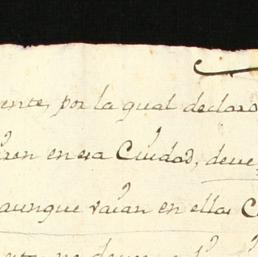 ente, por la qual declaro
en esa Ciudad, deve
aunque vaian en ellas C